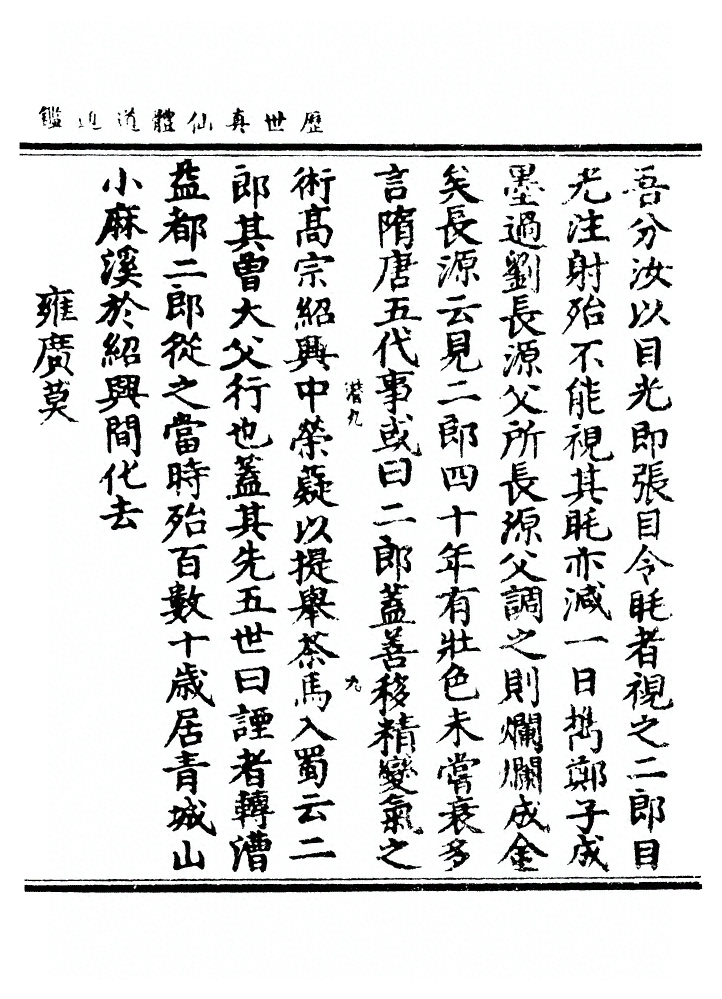 歷世真仙體道通鑑
吾分汝以目光即張目令眊者視之二郎目
光注射殆不能視其眊亦減一日携鄭子成
墨過劉長源父所長源父調之則爛爛成金
矣長源云見二郎四十年有壯色未嘗衰多
言隋唐五代事或曰二郎蓋善移精變氣之
潜九
九
術高宗紹興中榮薿以提舉茶馬入蜀云二
郎其曾大父行也蓋其先五世曰諲者轉漕
益都二郎從之當時殆百數十歲居青城山
小麻溪於紹興間化去
雍廣莫